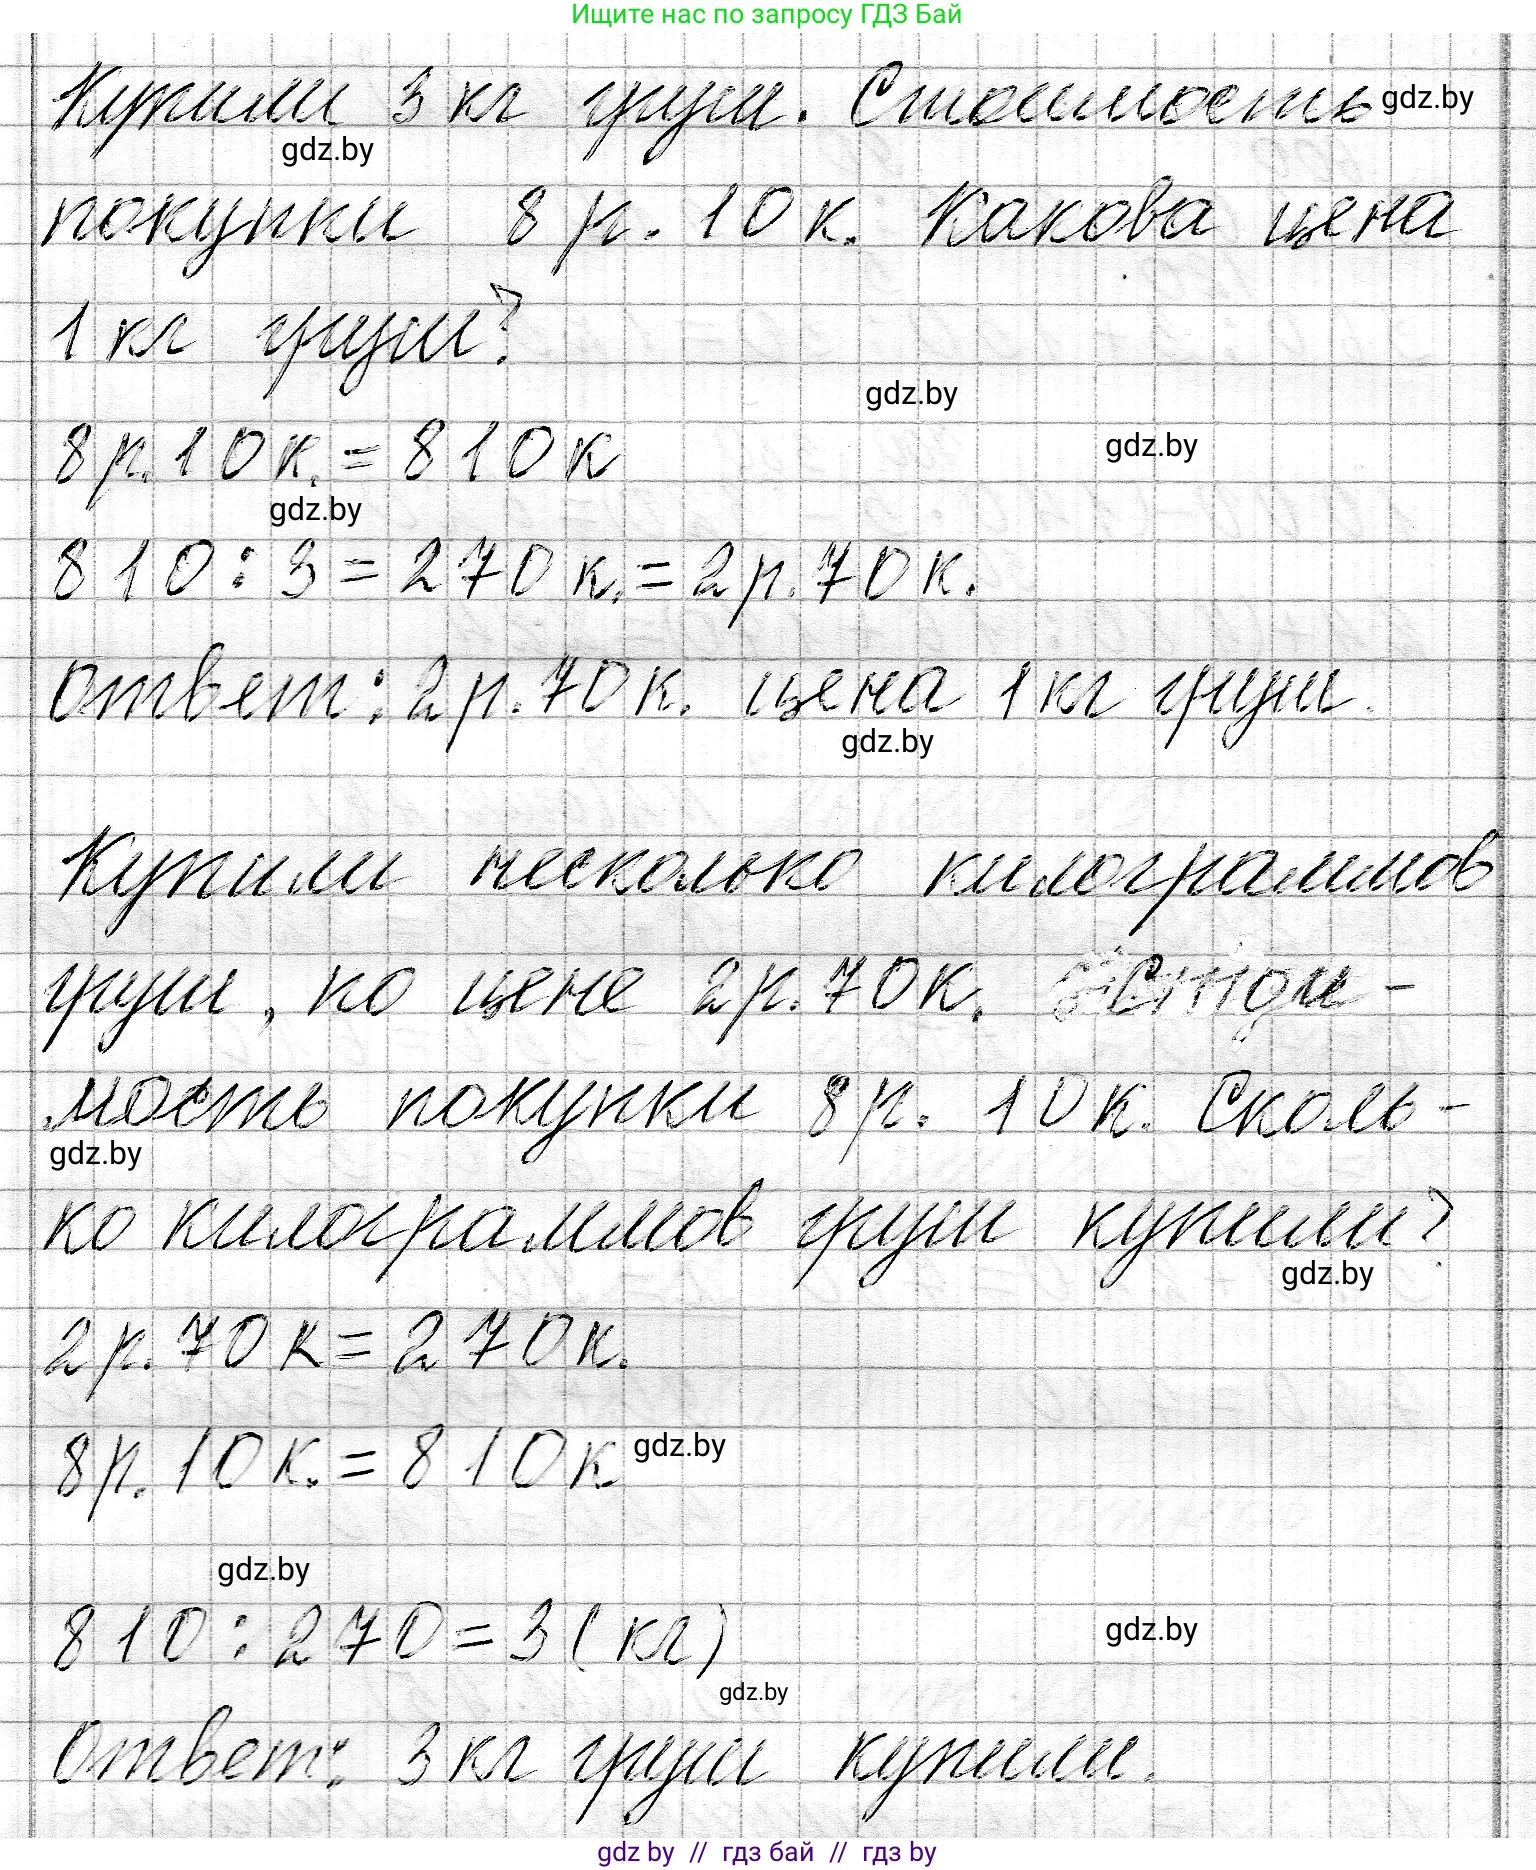 Ищите нас по запросу ГДЗ Бай
Купили 3 кг груш. Стоимость gdz.by
gdz.by
покупки 8 р. 10 к. Какова цена
1 кг груш?
gdz.by
8 р. 10 к. = 810 к gdz.by
gdz.by
810 : 3 = 270 к. = 2 р. 70 к.
Ответ: 2 р. 70 к. цена 1 кг груш.
gdz.by
Купили несколько килограммов
груш, по цене 2 р. 70 к. Стои-
мость покупки 8 р. 10 к. Сколь-
gdz.by
ко килограммов груш купили?
gdz.by
2 р. 70 к = 270 к.
8 р. 10 к. = 810 к gdz.by
gdz.by
810 : 270 = 3 (кг) gdz.by
gdz.by
Ответ: 3 кг груш купили.
gdz by // гдз бай // гдз by